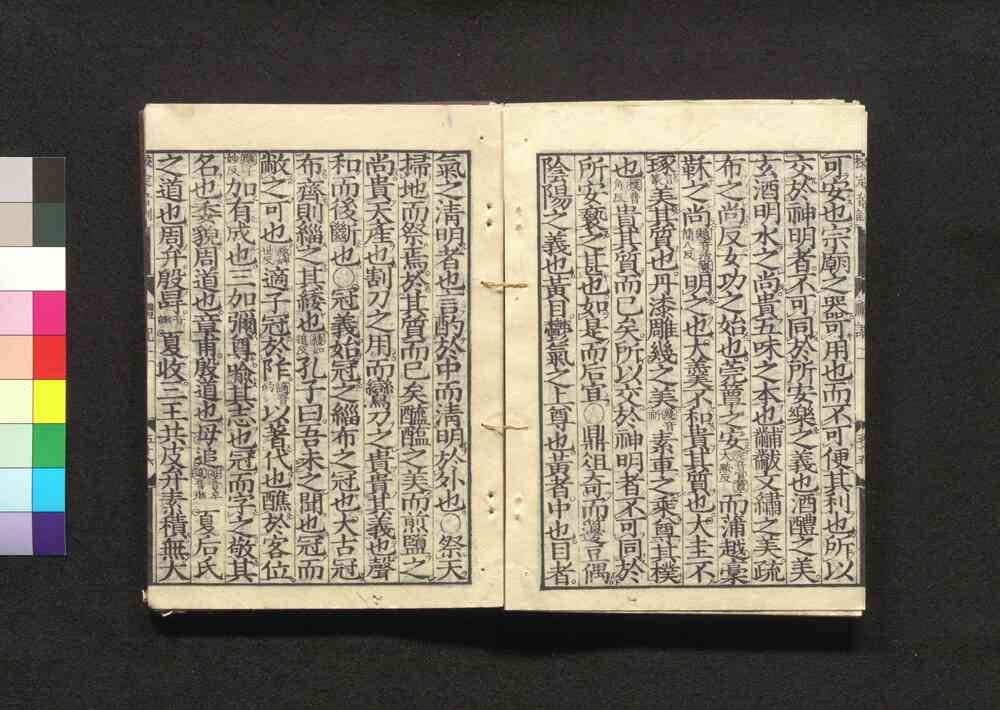 可安也宗廟之器可用也而不可便其利也所以
交於神明者不可同於所安樂之義也酒醴之美
玄酒明水之尚貴五味之本也黼黻文繡之美疏
布之尚反女功之始也莞簟之安而蒲越藁
鞂之尚簡八反明之也大羹不和貴其質也大圭不
琢美其質也丹漆雕幾之美幾音祈素車之乘尊其樸
也樸普角反貴其質而已矣所以交於神明者不可同於
所安褻之甚也如是而后宜○鼎俎奇而籩豆偶
陰陽之義也黃目鬱氣之上尊也黃者中也目者
氣之清明者也言酌於中而清明於外也○祭天
掃地而祭焉於其質而已矣醯醢之美而煎鹽之
尚貴天產也割刀之用而鸞刀之貴貴其義也聲
和而後斷也○冠義始冠之緇布之冠也大古冠
布齊則緇之其緌也緌如追反孔子曰吾未之聞也冠而
敝之可也適子冠於阼適音的以著代也醮於客位
醮子妙反加有成也三加彌尊喻其志也冠而字之敬其
名也委貌周道也章甫殷道也毋追夏后氏
之道也周弁殷冔夏收三王共皮弁素積無大